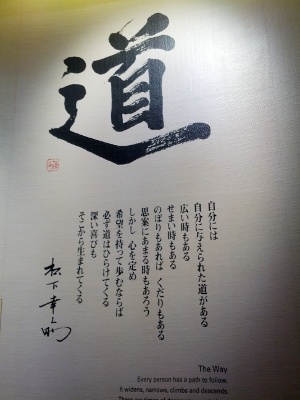 道
自分には
自分に与えられた道がある
広い時もある
せまい時もある
のぼりもあれば くだりもある
思案にあまる時もあろう
しかし 心を定め
希望を持って歩むならば
必ず道はひらけてくる
深い喜びも
そこから生まれてくる
松下幸之助
The Way
Every person has a path to follow.
It widens, narrows, climbs and descends.
There are times of